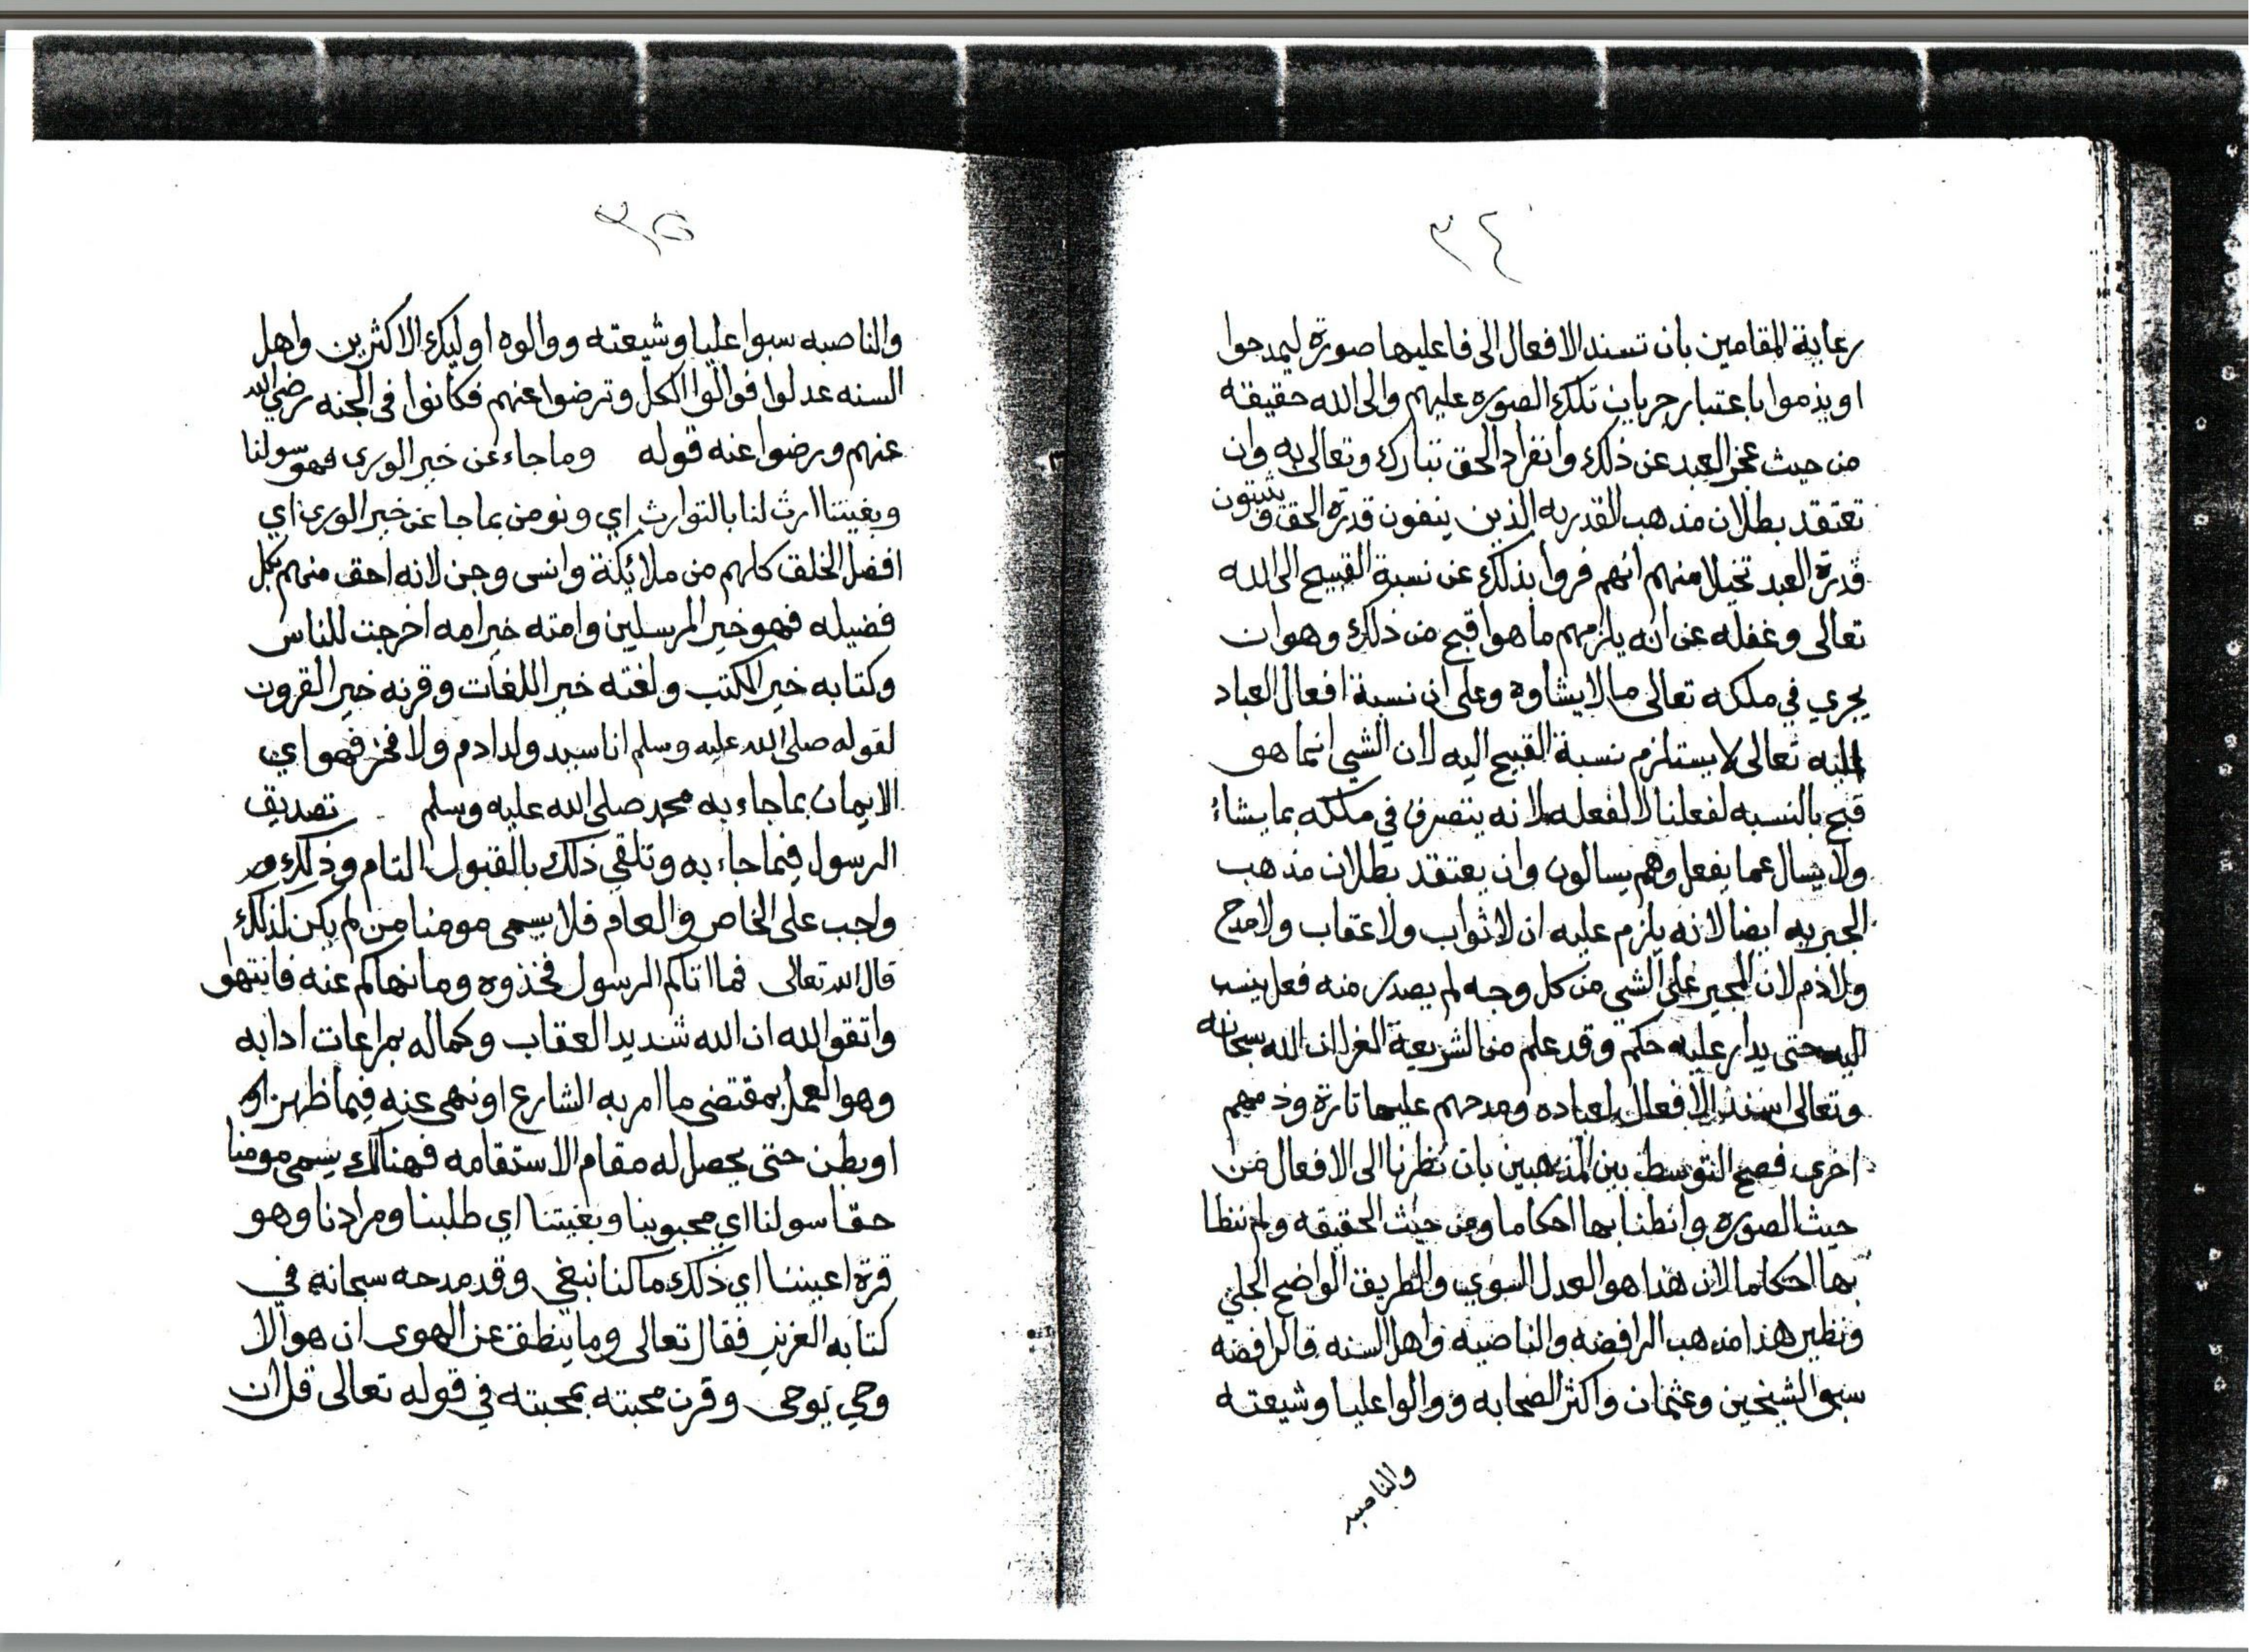 ٣٤
رعاية المقامين بان تسند الافعال الى فاعليها صورة ليمدحوا
او يذموا باعتبار جريان تلك الصوره عليهم والى الله حقيقه
من حيث عجز العبد عن ذلك وانفراد الحق تبارك وتعالى به وان
تعتقد بطلان مذهب القدريه الذين ينفون قدرة الحق ويثبتون
قدرة العبد تخيلا منهم انهم فروا بذلك عن نسبة القبيح الى الله
تعالى وغفله عن انه يلزمهم ما هو اقبح من ذلك وهو ان
يجري في ملكه تعالى ما لا يشاوه وعلى ان نسبة افعال العباد
اليه تعالى لا يستلزم نسبة القبيح اليه لان الشي انما هو
قبح بالنسبه لفعلنا لا لفعله لانه يتصرف في ملكه بما يشاء
ولا يسال عما يفعل وهم يسالون وان يعتقد بطلان مذهب
الجبريه ايضا لانه يلزم عليه ان لا ثواب ولا عقاب ولا مدح
ولا ذم لان المجبر على الشي من كل وجه لم يصدر منه فعل ينسب
اليه حتى يدار عليه حكم وقد علم من الشريعة الغرا ان الله سبحانه
وتعالى اسند الافعال لعباده ومدحهم عليها تارة وذمهم
اخرى فصح التوسط بين المذهبين بان نظرنا الى الافعال من
حيث الصوره وانطنا بها احكاما ومن حيث الحقيقه ولم ننظا
بها احكاما لان هذا هو العدل السوي والطريق الواضح الجلي
ونظير هذا مذهب الرافضه والناصبه واهل السنه فالرافضه
سبوا الشيخين وعثمان واكثر الصحابه ووالوا عليا وشيعته
والناصبه
٣٥
والناصبه سبوا عليا وشيعته ووالوه اوليك الاكثرين واهل
السنه عدلوا فوالوا الكل وترضوا عنهم فكانوا في الجنه رضي الله
عنهم ورضوا عنه قوله وما جاء عن خير الورى فهو سولنا
وبغيتنا ارث لنا بالتوارث اي ونومن بما جا عن خير الورى اي
افضل الخلق كلهم من ملائكة وانس وجن لانه احق منهم بكل
فضيله فهو خير المرسلين وامته خير امه اخرجت للناس
وكتابه خير الكتب ولغته خير اللغات وقرنه خير القرون
لقوله صلى الله عليه وسلم انا سيد ولد ادم ولا فخر فهو اي
الايمان بما جاء به محمد صلى الله عليه وسلم تصديق
الرسول فيما جاء به وتلقي ذلك بالقبول التام وذلك
واجب على الخاص والعام فلا يسمى مومنا من لم يكن لذلك
قال الله تعالى فما اتاكم الرسول فخذوه وما نهاكم عنه فانتهو
واتقوا الله ان الله شديد العقاب وكماله بمراعات ادابه
وهو العمل بمقتضى ما امر به الشارع او نهى عنه فيما ظهر او
او بطن حتى يحصل له مقام الاستقامه فهنالك يسمى مومنا
حقا سولنا اي محبوبنا وبغيتنا اي طلبنا ومرادنا وهو
قرة اعيننا اي ذلك ما كنا نبغي وقد مدحه سبحانه في
كتابه العزيز فقال تعالى وما ينطق عن الهوى ان هو الا
وحي يوحى وقرن محبته بمحبته في قوله تعالى قل ان